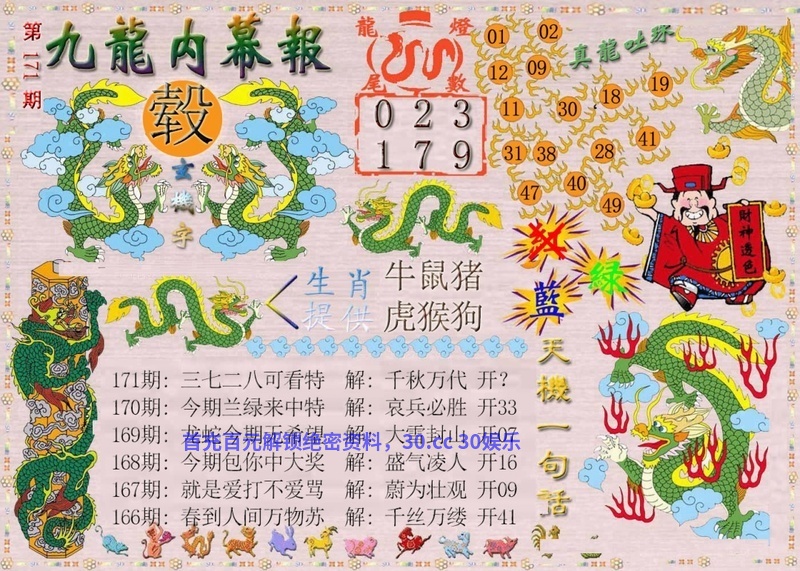 第171期
九龍内幕報
龍燈
尾數
023
179
真龍吐珠
01 02
12 09
11 30 18 19
31 38 28 41
47 40 49
玄機字
财神透色
藍 綠
生肖提供
牛鼠猪
虎猴狗
天機一句話
171期: 三七二八可看特 解: 千秋万代 开?
170期: 今期兰绿来中特 解: 哀兵必胜 开33
169期: 龙蛇今期不希望 解: 大雪封山 开07
首充百元解锁绝密资料，30.cc 30娱乐
168期: 今期包你中大奖 解: 盛气凌人 开16
167期: 就是爱打不爱骂 解: 蔚为壮观 开09
166期: 春到人间万物苏 解: 千丝万缕 开41